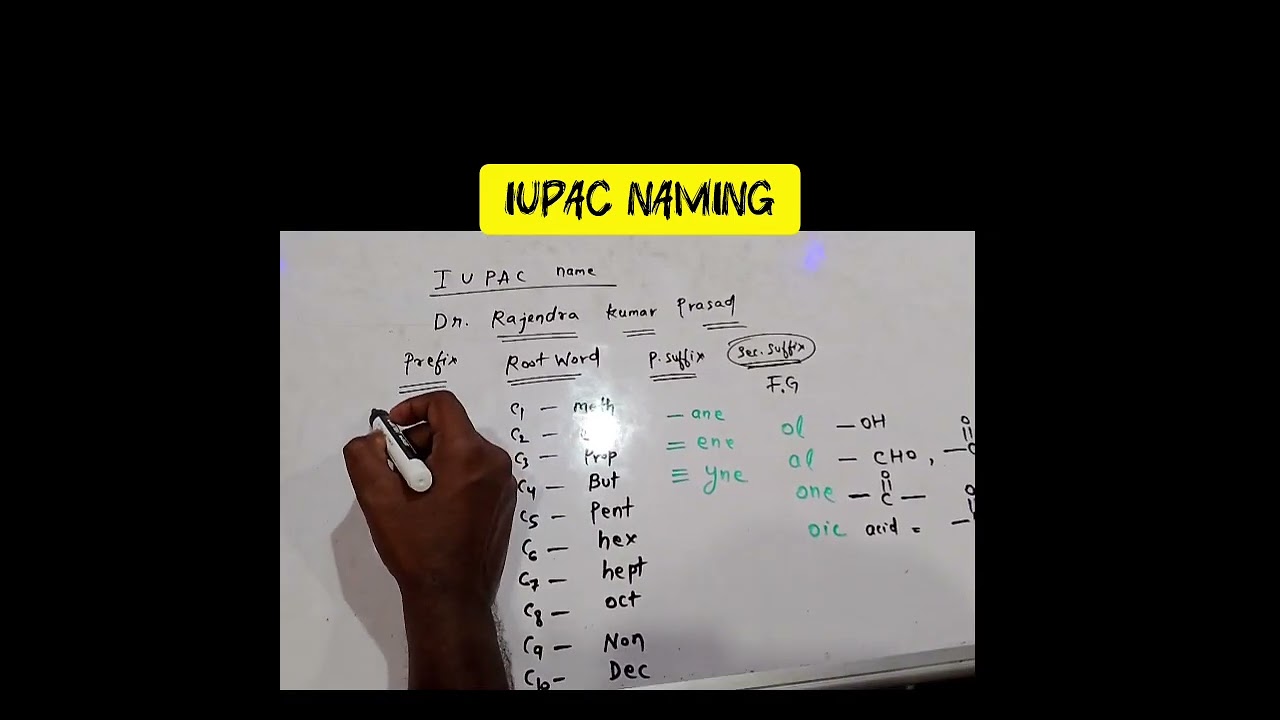 IUPAC NAMING
IUPAC name
Dr. Rajendra Kumar Prasad
Prefix Root Word P. suffix Sec. suffix
F.G
C1 — meth — ane ol —OH O
C2 — = ene al — CHO, —C
C3 — Prop ≡ yne O
C4 — But one — C — O
C5 — Pent oic acid = —
C6 — hex
C7 — hept
C8 — oct
C9 — Non
C10 — Dec